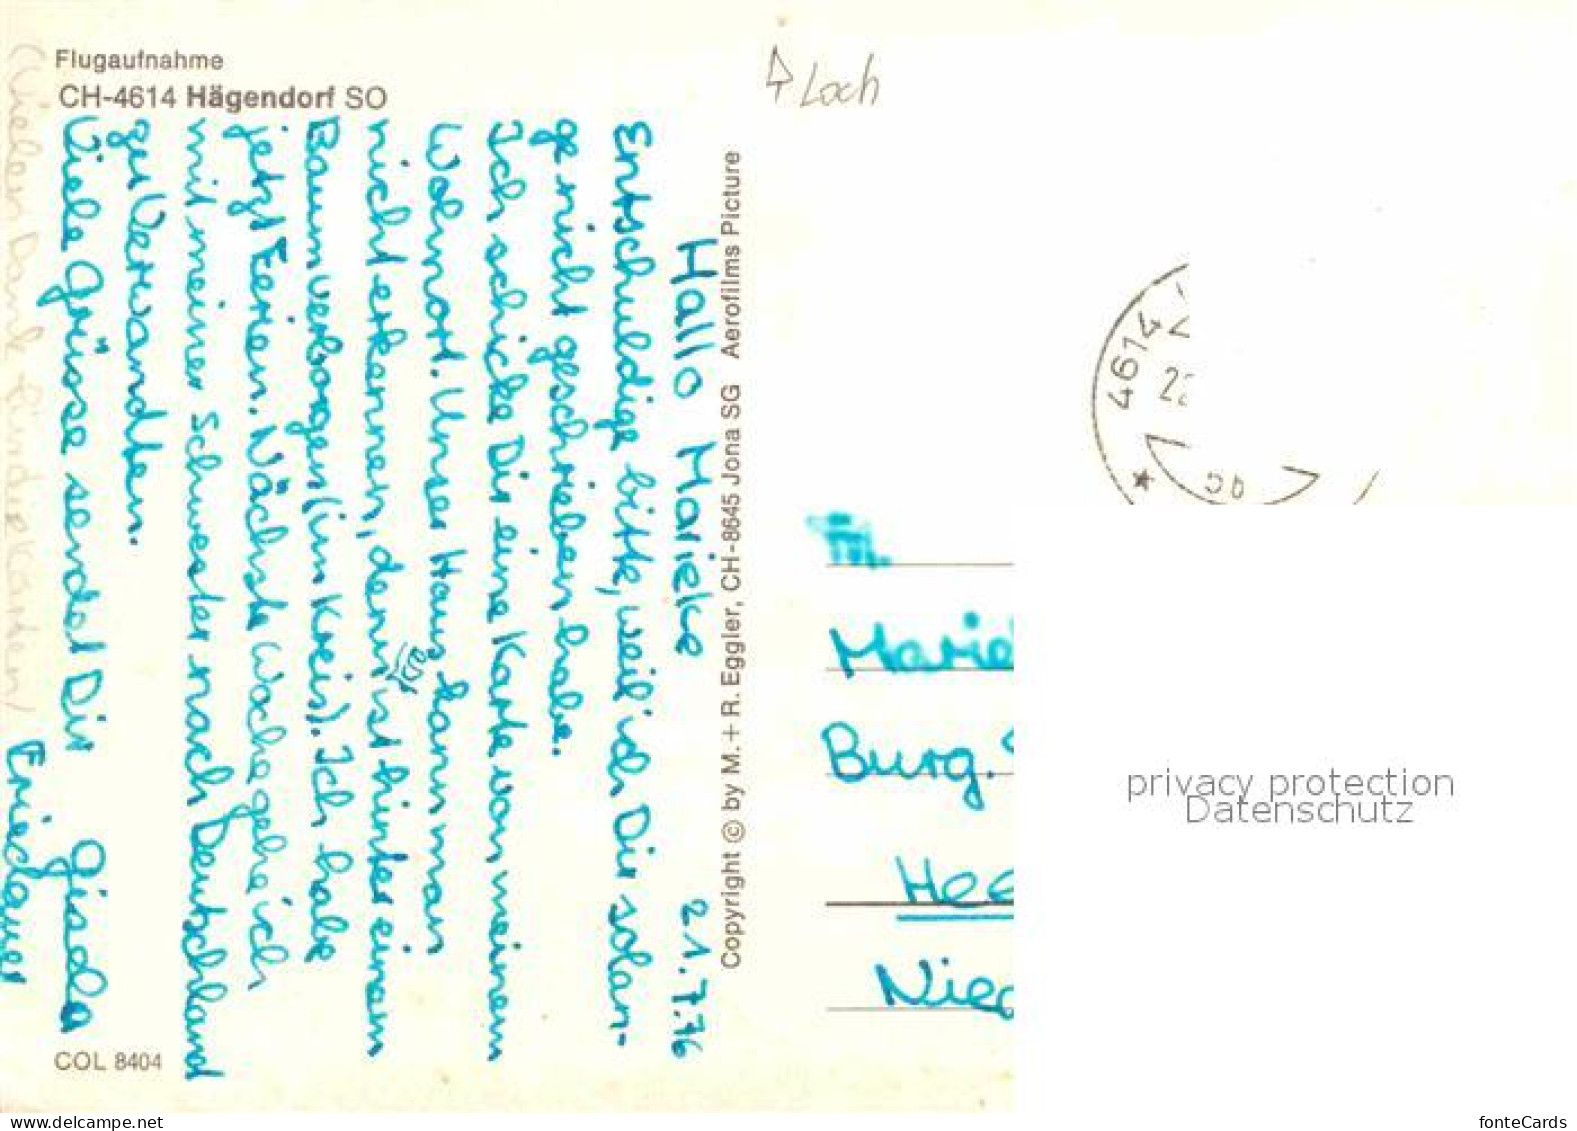 Flugaufnahme
CH-4614 Hägendorf SO
Loch
21.7.76
Hallo Marieke
Entschuldige bitte, weil ich Dir solan-
ge nicht geschrieben habe.
Ich schicke Dir eine Karte von meinem
Wohnort. Unser Haus kann man
nicht erkennen, denn es ist hinter einem
Baum verborgen (im Kreis). Ich habe
jetzt Ferien. Nächste Woche gehe ich
mit meiner Schwester nach Deutschland
zu Verwandten.
Viele Grüsse sendet Dir Gisela
(Vielen Dank für die Karten)
Copyright © by M.+R. Eggler, CH-8645 Jona SG Aerofilms Picture
COL 8404
4614
22
Frl.
Marie
Burg.
Hee
Nied
privacy protection
Datenschutz
www.delcampe.net
fonteCards